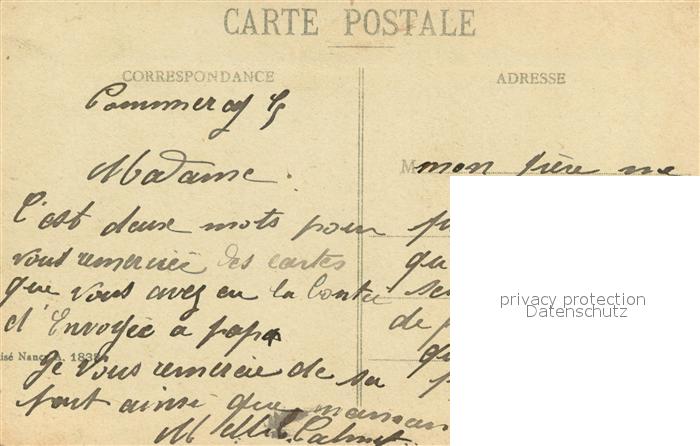 CARTE POSTALE
CORRESPONDANCE
ADRESSE
Commercy
Madame.
C'est deux mots pour
vous remerciée des cartes
que vous avez eu la bonté
d'Envoyée a papa
Je vous remercie de sa
tout ainsi que maman
M Mlle
isé Nancy
mon frère me
qu
de
qu
privacy protection
Datenschutz